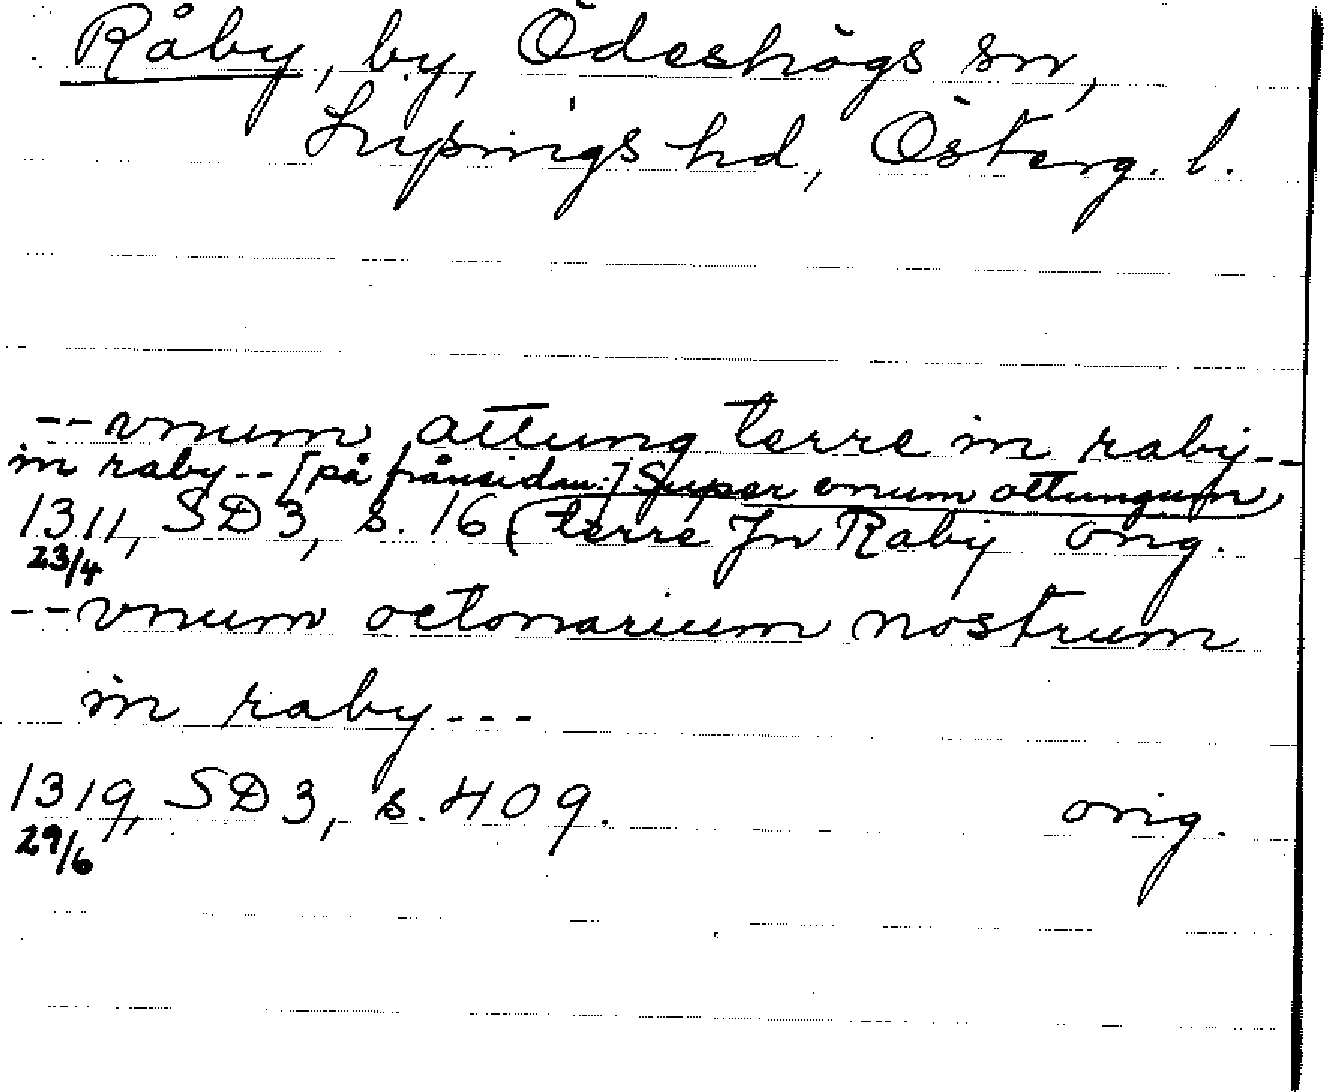 Råby, by, Ödeshögs sn,
Lysings hd, Österg. l.
--vnum attung terre in raby--
in raby--[på frånsidan:] Super vnum attungum
1311, SD3, s. 16 (terre Jn Raby orig.
23/4
--vnum octonarium nostrum
in raby---
1319, SD3, s. 409. orig.
29/6